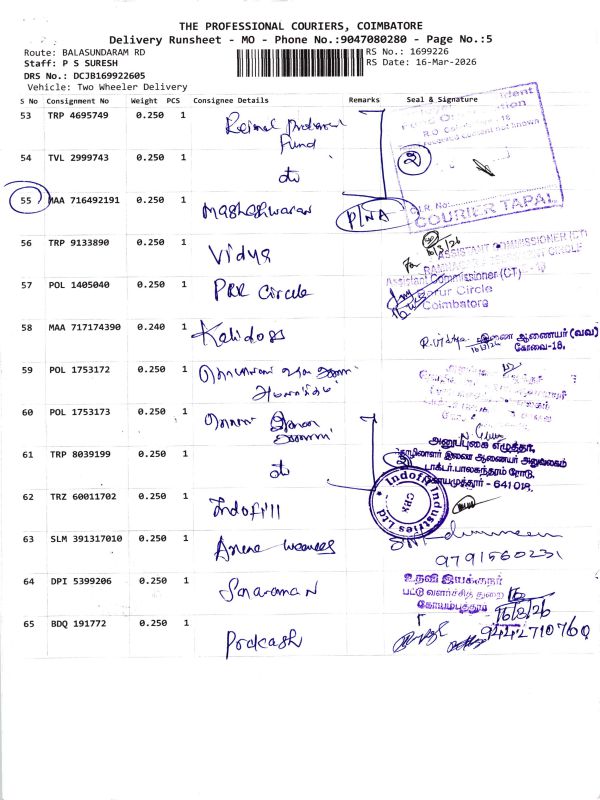 THE PROFESSIONAL COURIERS, COIMBATORE
Delivery Runsheet - MO - Phone No.:9047080280 - Page No.:5
Route: BALASUNDARAM RD
RS No.: 1699226
Staff: P S SURESH
RS Date: 16-Mar-2026
DRS No.: DCJB169922605
Vehicle: Two Wheeler Delivery
S No Consignment No Weight PCS Consignee Details Remarks Seal & Signature
53 TRP 4695749 0.250 1 Fund
54 TVL 2999743 0.250 1 do 2
55 MAA 716492191 0.250 1 Magheshwaran P/NA
COURIER TAPAL
56 TRP 9133890 0.250 1 Vidya 16/3/26
ASSISTANT COMMISSIONER (CT)
57 POL 1405040 0.250 1 PRR Circle
Assistant Commissioner (CT)
Circle
Coimbatore
58 MAA 717174390 0.240 1 Kalidoss R. Vidya இணை ஆணையர் (வவ)
16/3/26 கோவை-18.
59 POL 1753172 0.250 1
60 POL 1753173 0.250 1
61 TRP 8039199 0.250 1 do
அனுப்புகை எழுத்தர்,
தொழிலாளர் இணை ஆணையர் அலுவலகம்
டாக்டர்.பாலசுந்தரம் ரோடு,
கோயமுத்தூர் - 641018.
62 TRZ 60011702 0.250 1 Indofil
Indofil Industries Ltd
CBE
63 SLM 391317010 0.250 1 weavers
9791560231
64 DPI 5399206 0.250 1
உதவி இயக்குநர்
பட்டு வளர்ச்சித் துறை
கோயம்புத்தூர்
16/3/26
65 BDQ 191772 0.250 1 Prakash 9442710760